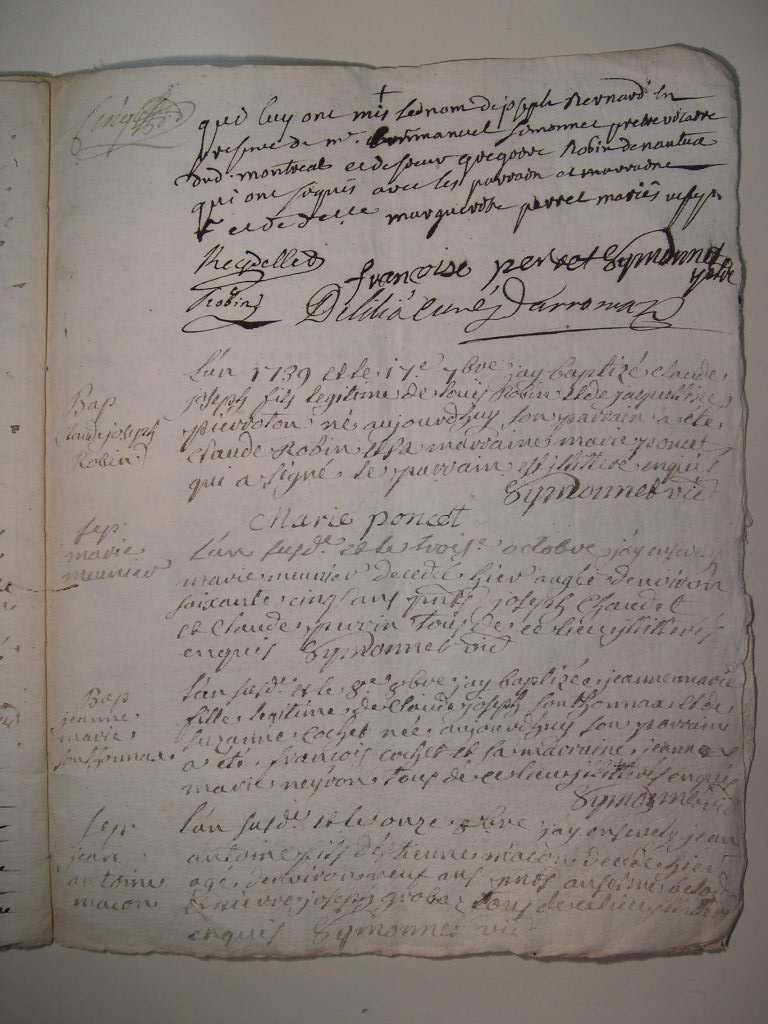 qui luy ont mis le nom de joseph Bernard En
presence de mr. Emmanuel Simonnet pretre vicaire
dud. montreal et de sieur gregoire Robin de nantua
qui ont signés avec les parrain et marraine
et de delle margueritte perret mariés
Reydellet
francoise perret Symonnet
Robin
Delilia curé Darromas
L'an 1739 et le 17e 7bre jay baptizé claude
Bap
claude joseph
Robin
joseph fils legitime de louis Robin et de jaqueline
pierroton né aujourdhuy son parrain a eté
claude Robin et sa marraine marie poncet
qui a signé le parrain est illitere enquis
Symonnet vic
Marie poncet
Sep
marie
meunier
L'an susd. et le trois octobre jay enseveli
marie meunier decedée hier agée denviron
soixante cinq ans pnts joseph Chaudet
et Claude perrin tous de ce lieu illiterés
enquis Symonnet vic
Bap
jeanne
marie
Sonthonnax
L'an susd. et le 8e 8bre jay baptizée jeanne marie
fille legitime de claude joseph sonthonnax et de
suzanne cochet née aujourdhuy son parrain
a eté françois cochet et sa marraine jeanne
marie neyron tous de ce lieu illiterés enquis
Symonnet vic
Sep
jean
antoine
macon
L'an susd. et le onze 8bre jay enseveli jean
antoine fils d'etienne macon decedé hier
agé denviron neuf ans pnts
pierre joseph grobaz tous de ce lieu
enquis Symonnet vic